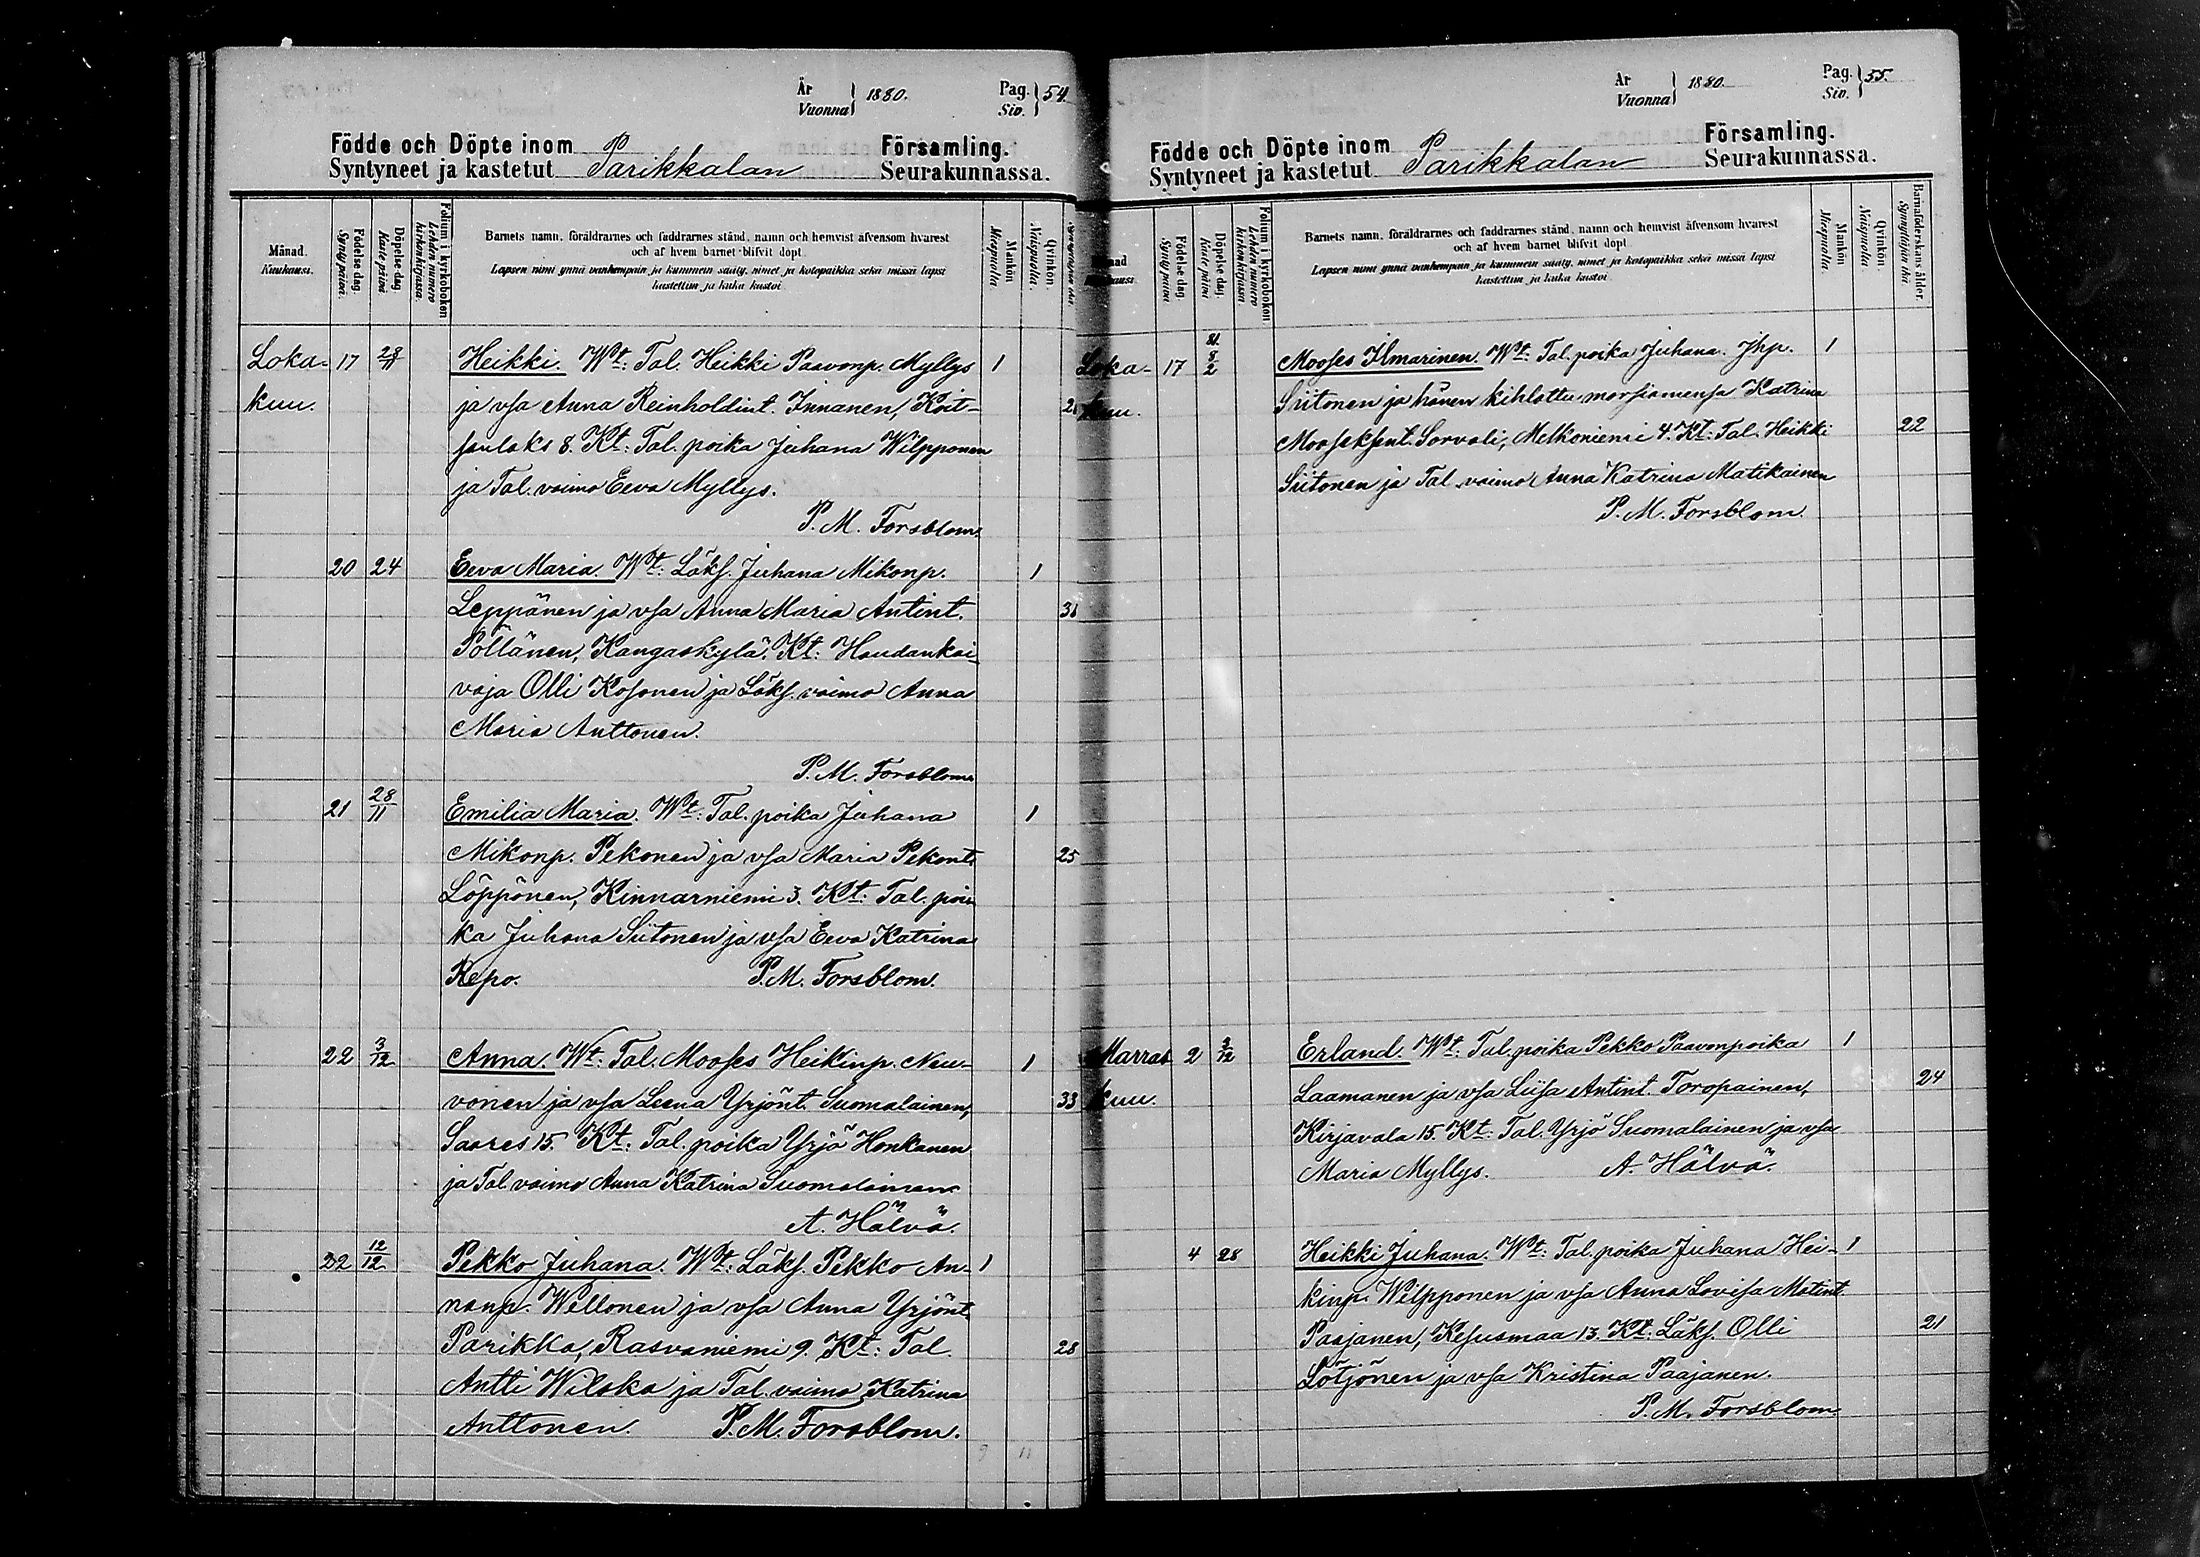 År
Vuonna } 1880.
Pag.
Siv. } 54
Födde och Döpte inom
Syntyneet ja kastetut Parikkalan Församling.
Seurakunnassa.
Månad.
Kuukausi.
Födelse dag.
Synty päivä.
Döpelse dag.
Kaste päivä.
Folium i kyrkoboken
Lehden numero
kirkonkirjassa.
Barnets namn, föräldrarnes och faddrarnes stånd, namn och hemvist äfvensom hvarest
och af hvem barnet blifvit döpt.
Lapsen nimi ynnä vanhempain ja kummein sääty, nimet ja kotopaikka sekä missä lapsi
kastettiin ja kuka kastoi.
Mankön
Miespuolia
Qvinkön.
Naispuolia.
Loka- 17 28/11 Heikki. Wt: Tal. Heikki Paavonp. Myllys 1
kuu. ja vsa Anna Reinholdint. Innanen, Koit-
sanlaks 8. Kt: Tal. poika Juhana Wilpponen
ja Tal. vaimo Eeva Myllys.
P. M. Forsblom.
20 24 Eeva Maria. Wt: Läks. Juhana Mikonp. 1
Leppänen ja vsa Anna Maria Antint. 31
Pöllänen, Kangaskylä. Kt: Haudankai-
vaja Olli Kosonen ja Läks. vaimo Anna
Maria Anttonen.
P. M. Forsblom
21 28/11 Emilia Maria. Wt: Tal. poika Juhana 1
Mikonp. Pekonen ja vsa Maria Pekont. 25
Löppönen, Kinnarniemi 3. Kt: Tal. poi-
ka Juhana Siitonen ja vsa Eeva Katrina
Repo. P. M. Forsblom.
22 3/12 Anna. Wt: Tal. Mooses Heikinp. Neu- 1
vonen ja vsa Leena Yrjönt. Suomalainen, 33
Saares 15. Kt: Tal. poika Yrjö Honkanen
ja Tal. vaimo Anna Katrina Suomalainen.
A. Hälvä.
22 12/12 Pekko Juhana. Wt: Läks. Pekko An- 1
nanp. Wellonen ja vsa Anna Yrjönt.
Parikka, Rasvaniemi 9. Kt: Tal. 28
Antti Wilska ja Tal. vaimo Katrina
Anttonen. P. M. Forsblom.
År
Vuonna } 1880.
Pag.
Siv. } 55.
Födde och Döpte inom
Syntyneet ja kastetut Parikkalan Församling.
Seurakunnassa.
Födelse dag.
Synty päivä
Döpelse dag.
Kaste päivä
Folium i kyrkoboken
Lehden numero
kirkonkirjassa
Barnets namn, föräldrarnes och faddrarnes stånd, namn och hemvist äfvensom hvarest
och af hvem barnet blifvit döpt.
Lapsen nimi ynnä vanhempain ja kummein sääty, nimet ja kotopaikka sekä missä lapsi
kastettiin ja kuka kastoi.
Mankön
Miespuolia
Qvinkön.
Naispuolia
Barnaföderskans ålder.
Synnyttäjän ikä
Loka- 17 81 8/2 Mooses Ilmarinen. Wt: Tal. poika Juhana Jhp. 1
kuu. Siitonen ja hänen kihlattu morsiamensa Katrina
Mooseksent. Sorvali, Melkoniemi 4. Kt: Tal. Heikki 22
Siitonen ja Tal. vaimo Anna Katrina Matikainen
P. M. Forsblom.
Marras 2 3/12 Erland. Wt: Tal. poika Pekko Paavonpoika 1
kuu. Laamanen ja vsa Liisa Antint. Toropainen, 24
Kirjavala 15. Kt: Tal. Yrjö Suomalainen ja vsa
Maria Myllys. A. Hälvä.
4 28 Heikki Juhana. Wt: Tal. poika Juhana Hei- 1
kinp. Wilpponen ja vsa Anna Lovisa Matint.
Paajanen, Kesusmaa 13. Kt: Läks. Olli 21
Lötjönen ja vsa Kristina Paajanen.
P. M. Forsblom.